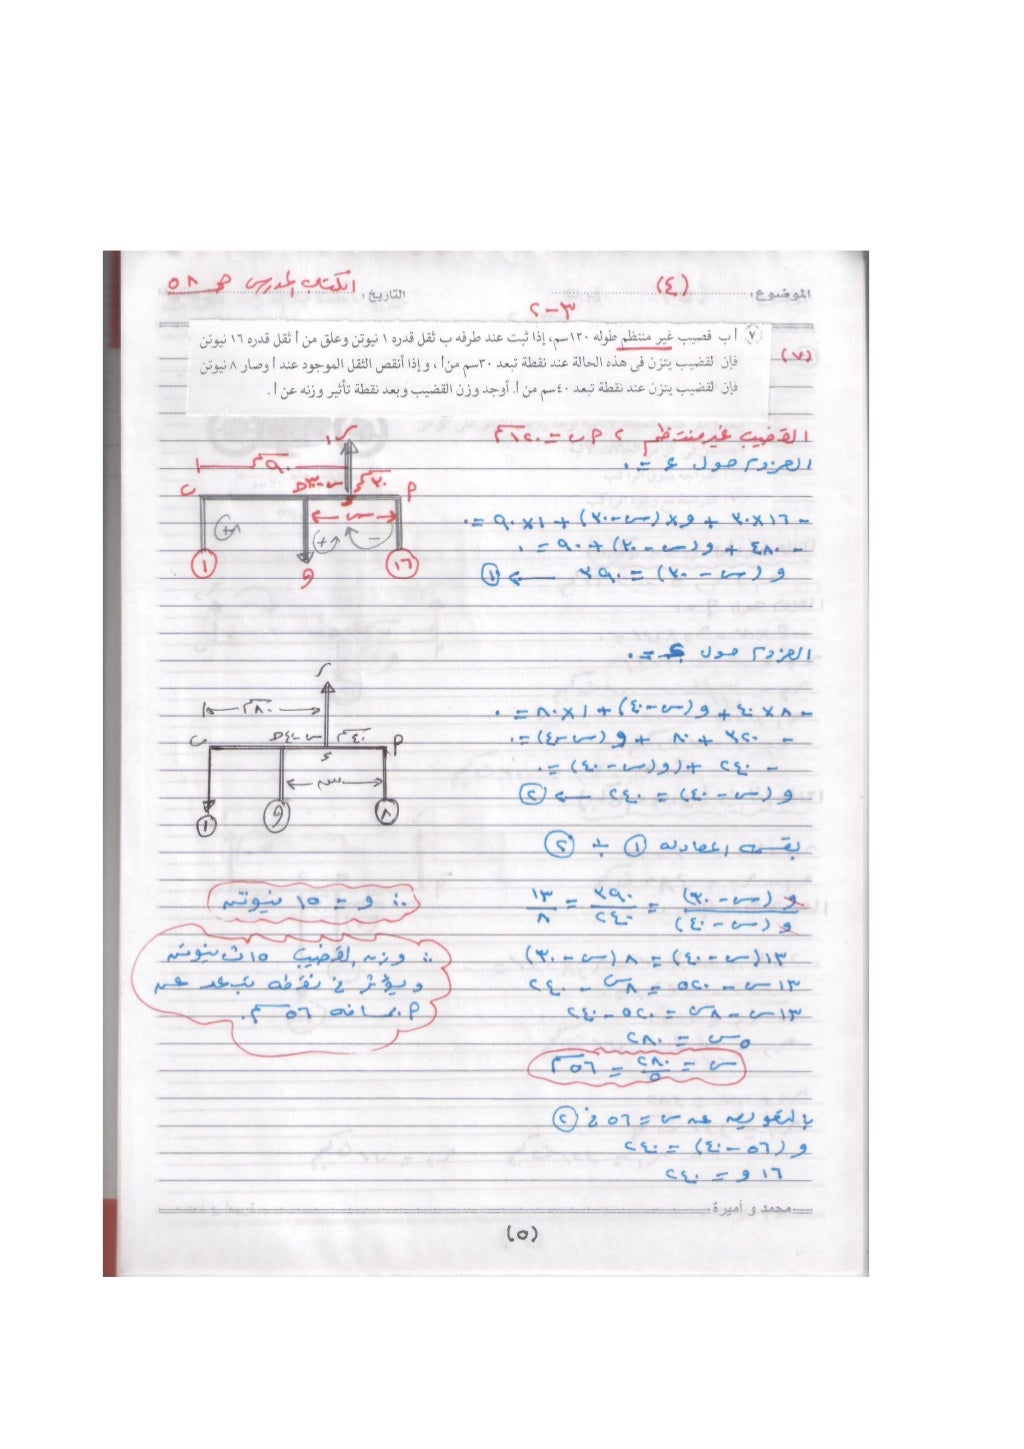 الموضوع: (٤) التاريخ: الكتاب المدرسى صـ ٥٨
٣-٢
(٧)
٧ أ ب قضيب غير منتظم طوله ١٢٠سم، إذا ثبت عند طرفه ب ثقل قدره ١ نيوتن وعلق من أ ثقل قدره ١٦ نيوتن
فإن لقضيب يتزن فى هذه الحالة عند نقطة تبعد ٣٠سم من أ، وإذا أنقص الثقل الموجود عند أ وصار ٨ نيوتن
فإن لقضيب يتزن عند نقطة تبعد ٤٠سم من أ. أوجد وزن القضيب وبعد نقطة تأثير وزنه عن أ.
القضيب غير منتظم ، أ ب = ١٢٠سم
العزوم حول ء = ٠
- ١٦×٣٠ + و×(س-٣٠) + ١×٩٠ = ٠
- ٤٨٠ + و(س-٣٠) + ٩٠ = ٠
و (س - ٣٠) = ٣٩٠ ← ①
ر١
٩٠سم
ب س-٣٠ حـ ٣٠سم أ
س
ء
(+) (+) (-)
١ و ١٦
العزوم حول ء = ٠
- ٨×٤٠ + و(س-٤٠) + ١×٨٠ = ٠
- ٣٢٠ + ٨٠ + و(س-٤٠) = ٠
- ٢٤٠ + (و(س-٤٠) = ٠
و (س-٤٠) = ٢٤٠ ← ②
ر
٨٠سم
ب س-٤٠ حـ ٤٠سم أ
ء
س
١ و ٨
بقسمة المعادلة ① ÷ ②
و (س-٣٠) / و (س-٤٠) = ٣٩٠ / ٢٤٠ = ١٣ / ٨
١٣(س-٤٠) = ٨(س-٣٠)
١٣س - ٥٢٠ = ٨س - ٢٤٠
١٣س - ٨س = ٥٢٠ - ٢٤٠
٥س = ٢٨٠
س = ٢٨٠ / ٥ = ٥٦سم
بالتعويض عن س = ٥٦ فى ②
و (٥٦-٤٠) = ٢٤٠
١٦ و = ٢٤٠
∴ و = ١٥ نيوتن
∴ وزن القضيب ١٥ث نيوتن
ويؤثر فى نقطة تبعد عن
أ بمسافة ٥٦سم.
محمد و أميرة
(٥)